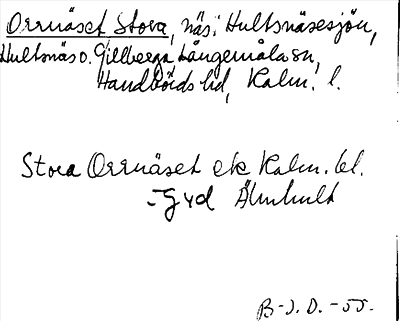 Orrnäset Stora, näs i Hultsnäsesjön,
Hultsnäs o. Gillberga Långemåla sn,
Handbörds hd, Kalm. l.
Stora Orrnäset ek Kalm. bl.
-Gvd Älmhult
B-J. D. -55.